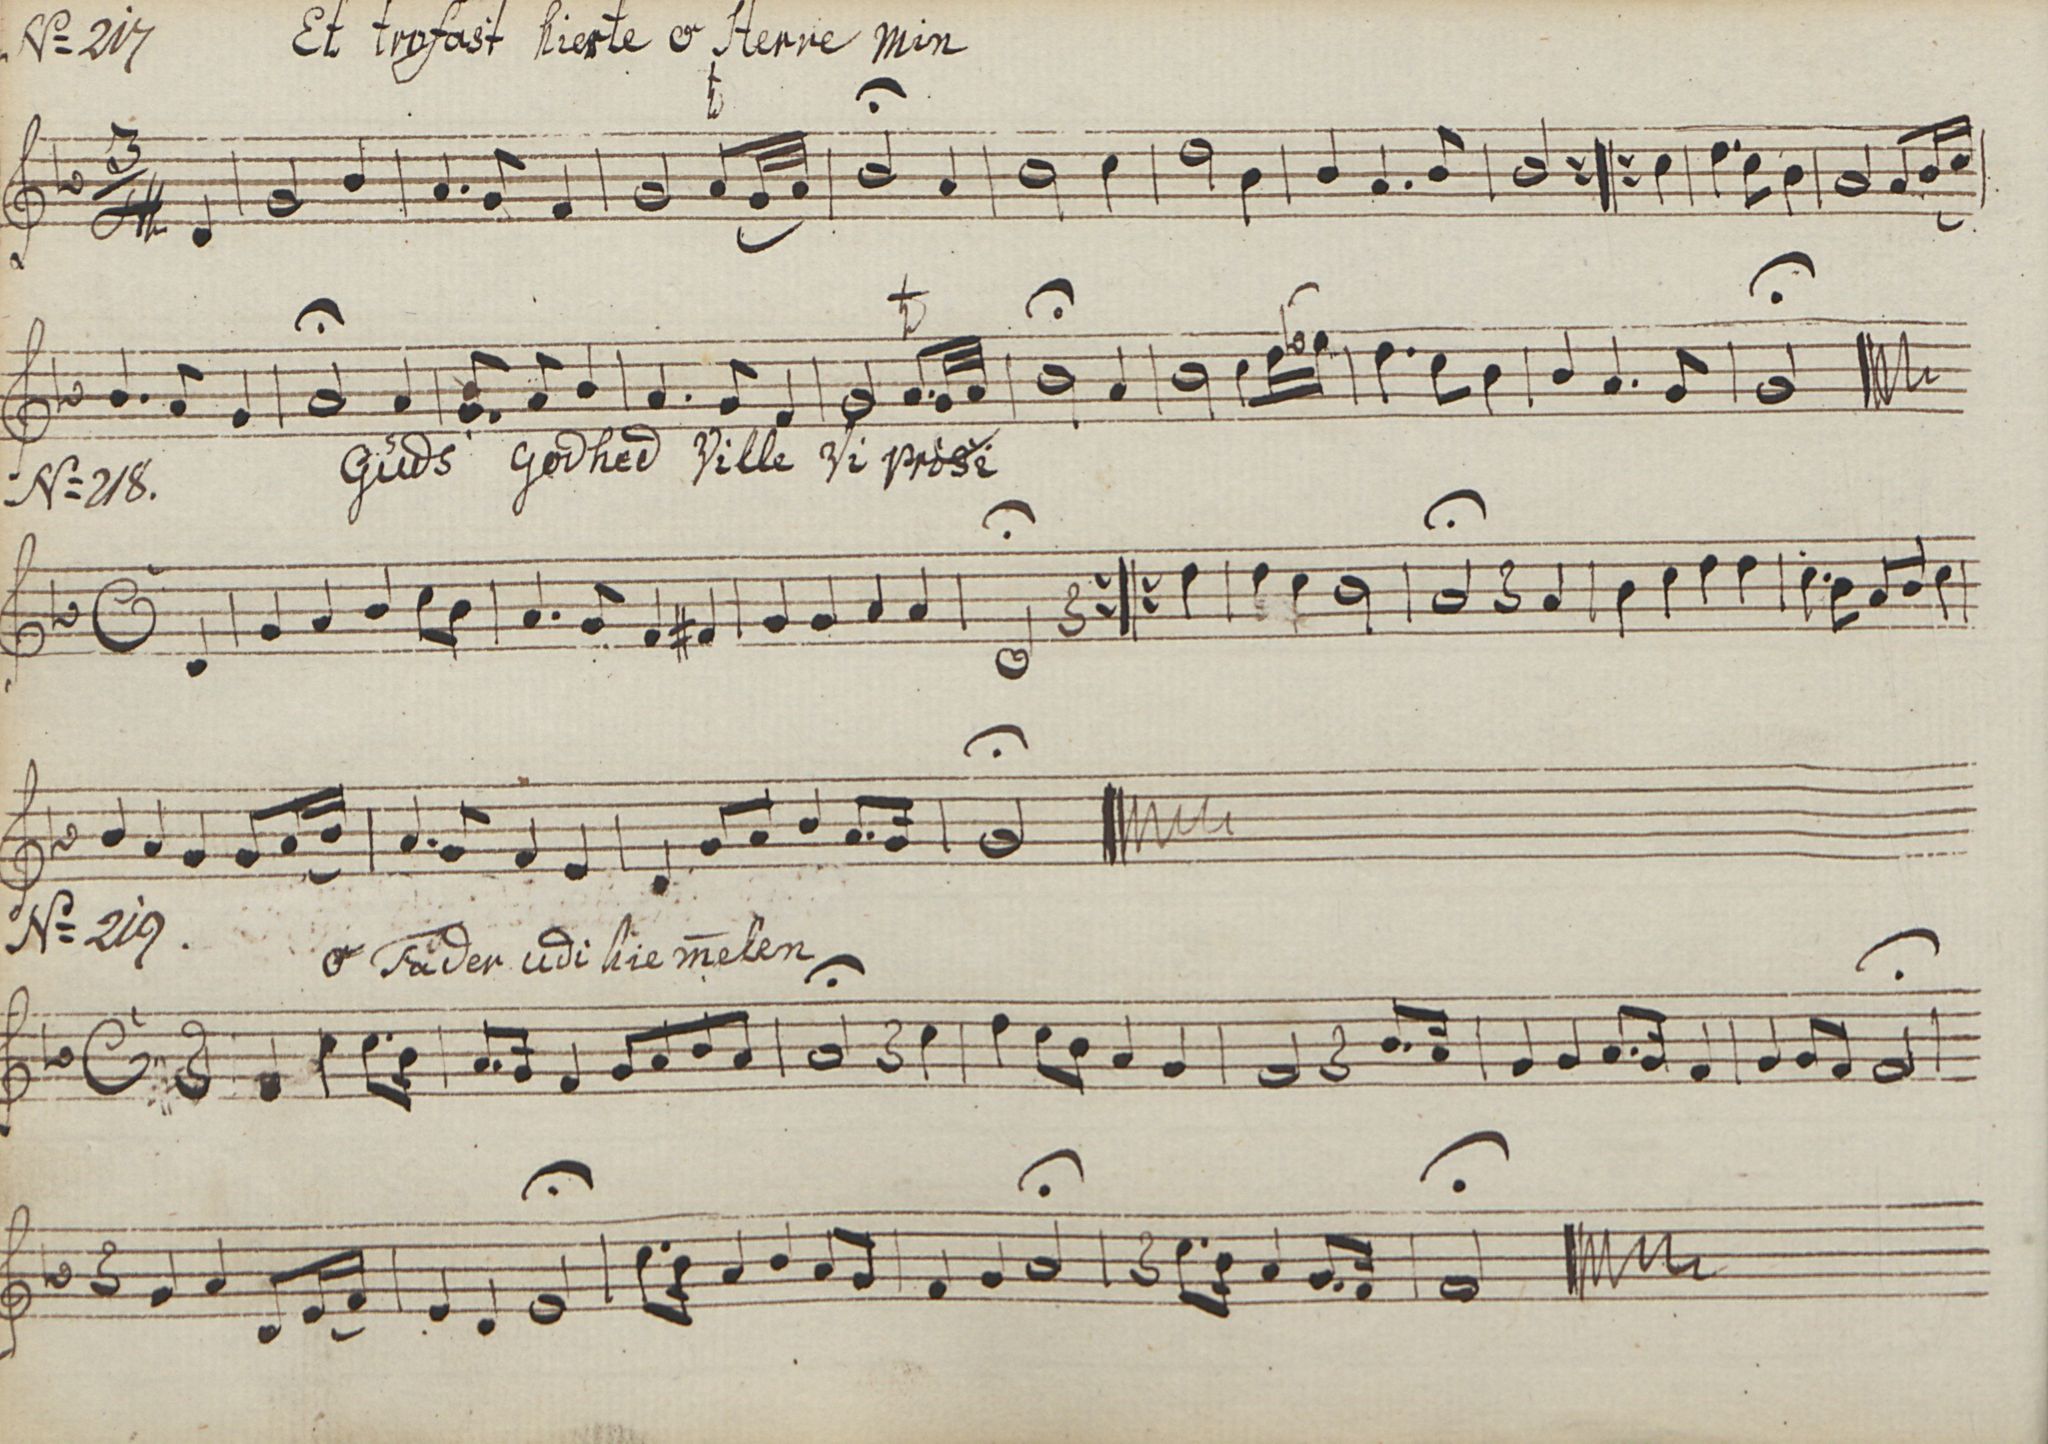 No 217 Et trofast hierte o Herre min
Guds Godhed Ville Vi prise
No 218.
No 219.
o Fader udi hiem̅elen